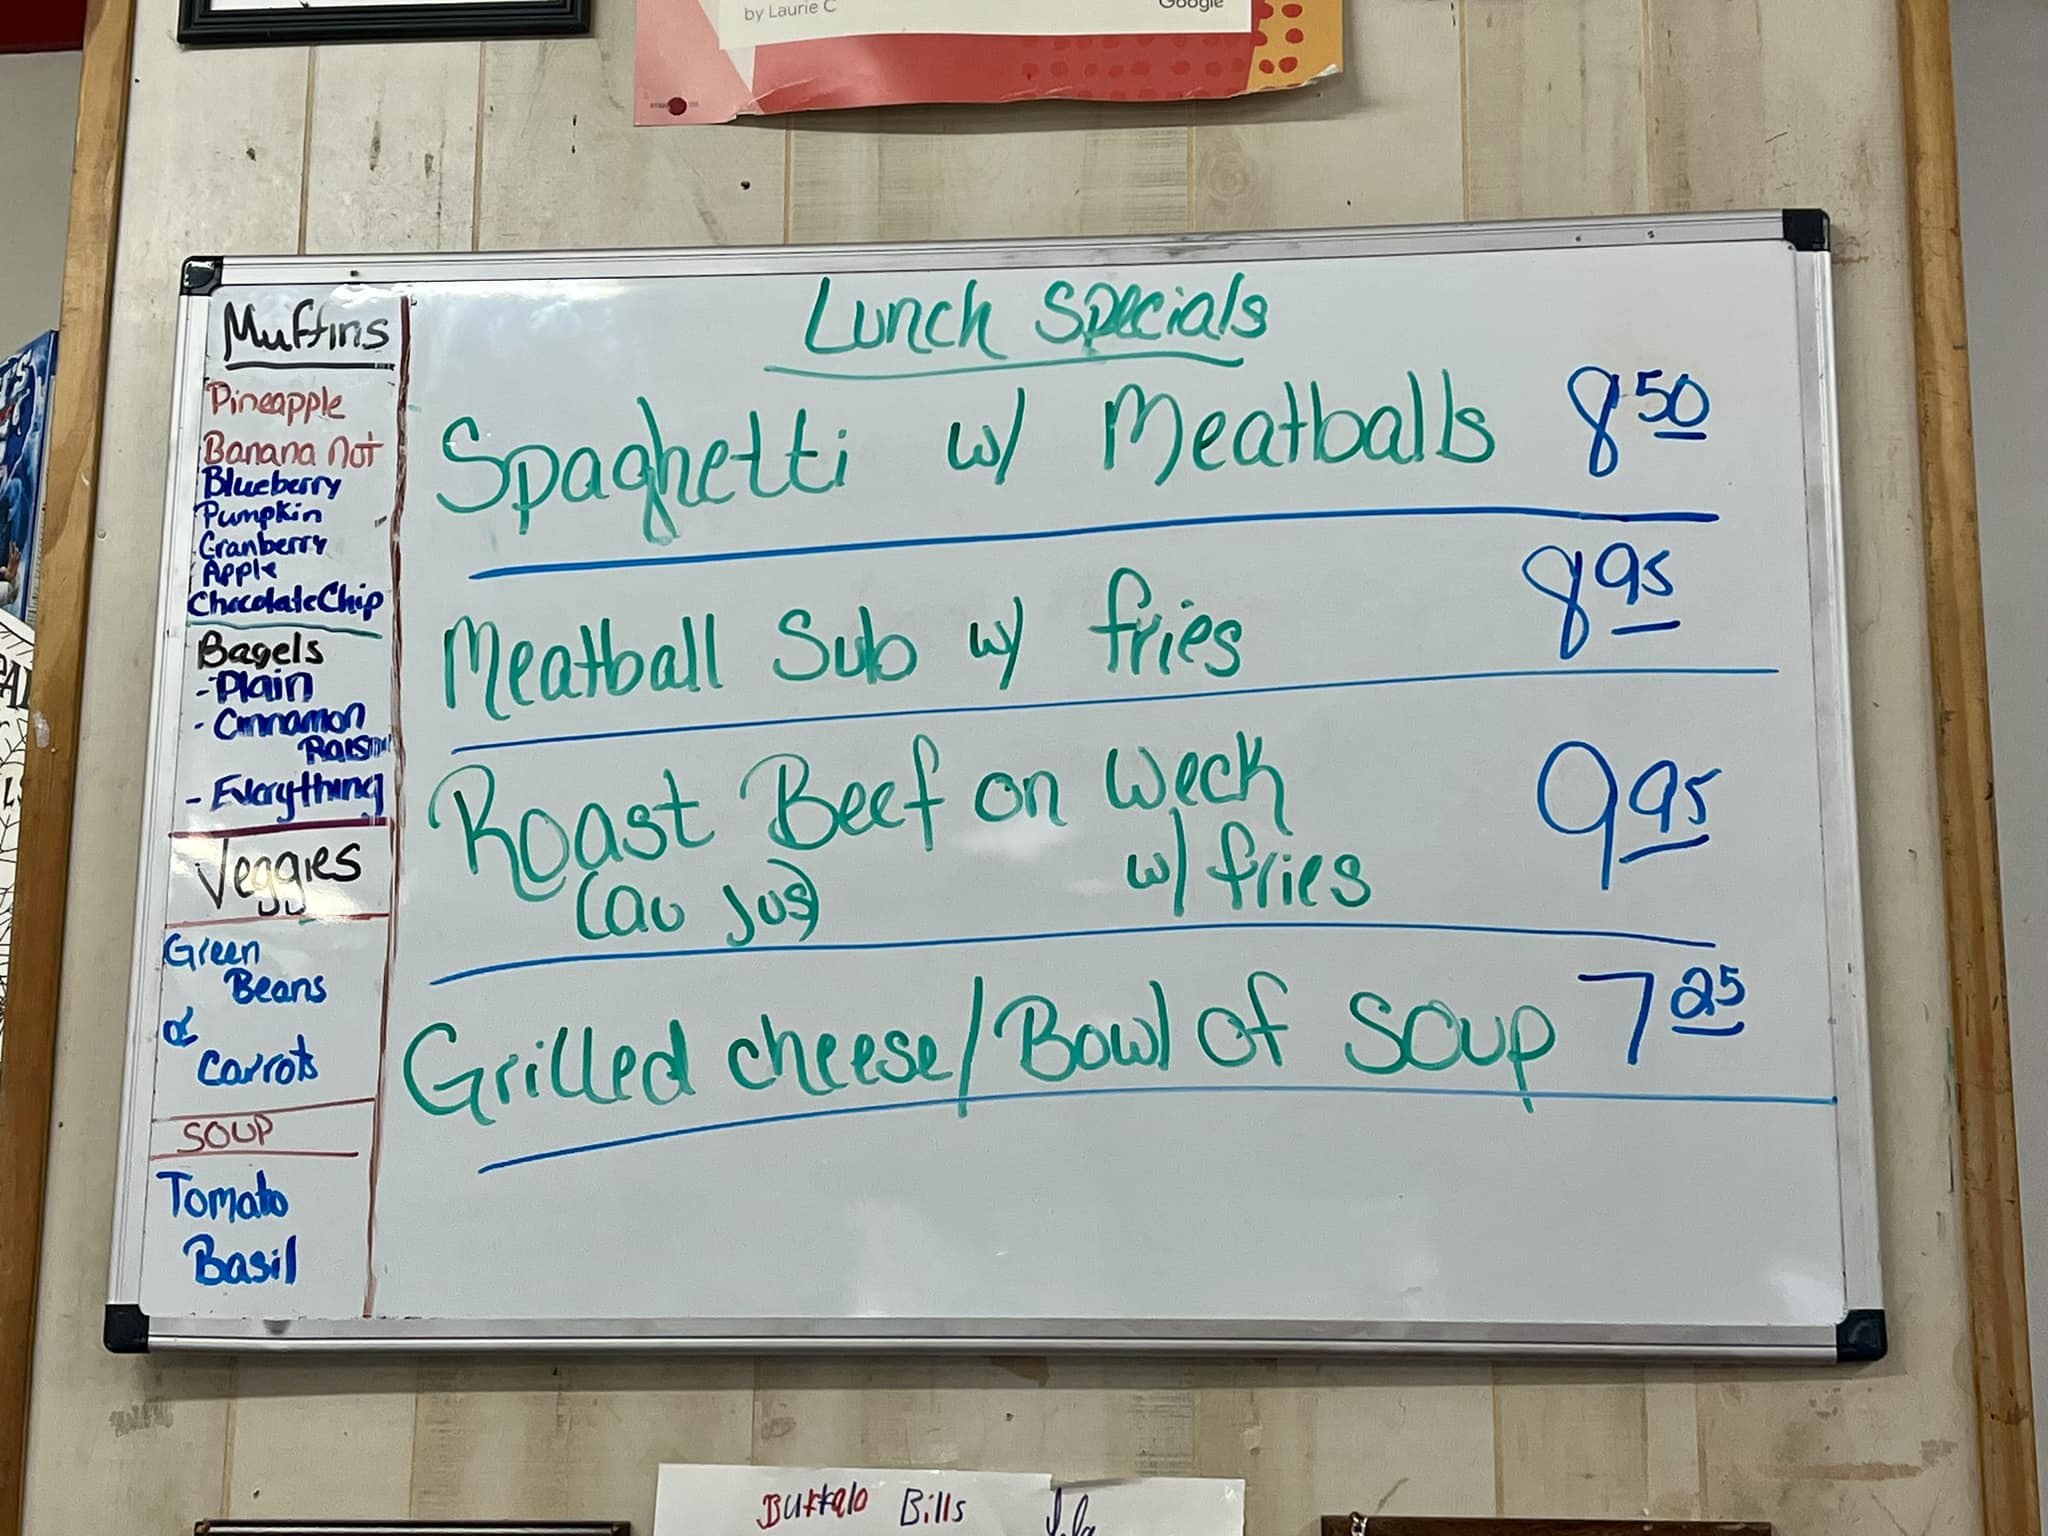 by Laurie C
Google
Muffins
Pineapple
Banana nut
Blueberry
Pumpkin
Cranberry
Apple
Chocolate Chip
Bagels
- Plain
- Cinnamon
Raisin
- Everything
Veggies
Green
Beans
&
Carrots
SOUP
Tomato
Basil
Lunch Specials
Spaghetti w/ Meatballs 8 50
Meatball Sub w/ fries 8 95
Roast Beef on Weck 9 95
(au jus) w/ fries
Grilled cheese/Bowl of Soup 7 25
Buffalo Bills